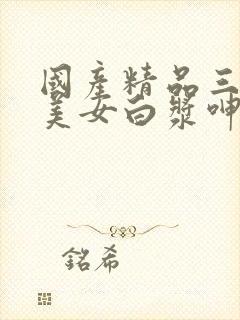 國產精品三
美女白漿呻
銘希